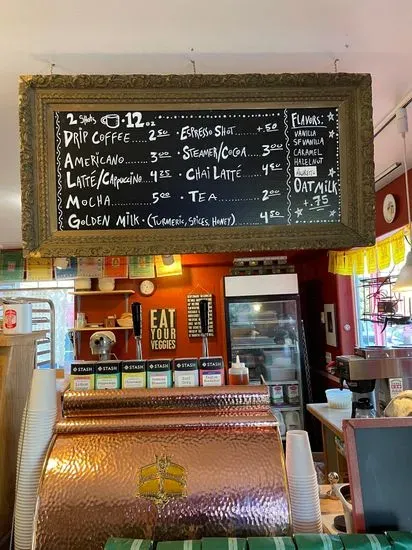 2 Shots 12oz
Drip Coffee 2⁵⁰
Americano 3⁰⁰
Latte/Cappuccino 4²⁵
Mocha 5⁰⁰
Golden Milk (Turmeric, Spices, Honey) 4⁵⁰
Espresso Shot +.50
Steamer/Cocoa 3⁰⁰
Chai Latte 4⁵⁰
Tea 2⁰⁰
Flavors:
Vanilla
SF Vanilla
Caramel
Hazelnut
Oatmilk
+.75
EAT
YOUR
VEGGIES
STASH
STASH
STASH
STASH
STASH
STASH